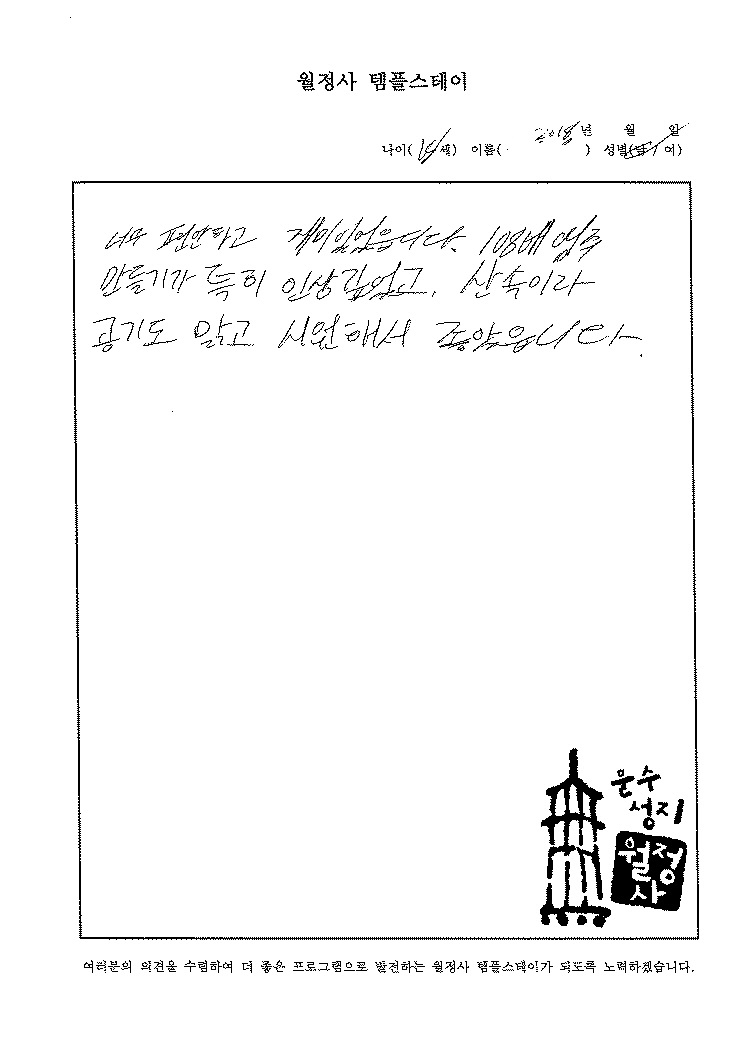 월정사 템플스테이
2018년 월 일
나이( 세) 이름( ) 성별(남/여)
너무 편안하고 재미있었습니다. 108배 염주
만들기가 특히 인상깊었고, 산속이라
공기도 맑고 시원해서 좋았습니다.
문수
성지
월정
사
여러분의 의견을 수렴하여 더 좋은 프로그램으로 발전하는 월정사 템플스테이가 되도록 노력하겠습니다.